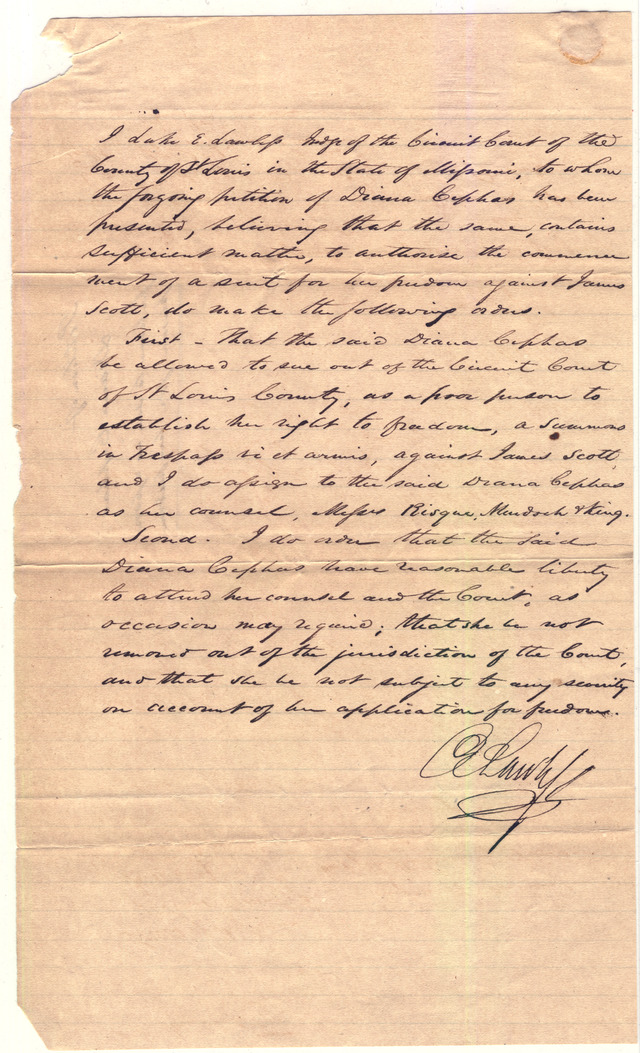 I Luke E. Lawless Judge of the Circuit Court of the
County of St Louis in the State of Missouri, to whom
the forgoing petition of Diana Cephas has been
presented, believing that the same, contains
sufficient matter, to authorise the commence
ment of a suit for her freedom against James
Scott, do make the following orders.
First - That the said Diana Cephas
be allowed to sue out of the Circuit Court
of St Louis County, as a poor person to
establish her right to freedom, a Summons
in Trespass vi et armis, against James Scott,
and I do assign to the said Diana Cephas
as her counsel, Messrs Risque, Murdoch & King.
Second. I do order that the said
Diana Cephas have reasonable liberty
to attend her counsel and the Court, as
occasion may require; that she be not
removed out of the jurisdiction of the Court,
and that she be not subject to any severity
on account of her application for freedom.
Lawless